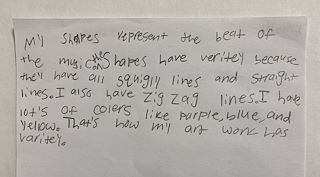 My shapes represent the beat of
the music. The Shapes have veritey because
they have all squigly lines and straight
lines. I also have zig zag lines. I have
lot's of colers like purple, blue, and
yellow. That's how my art work has
varitey.